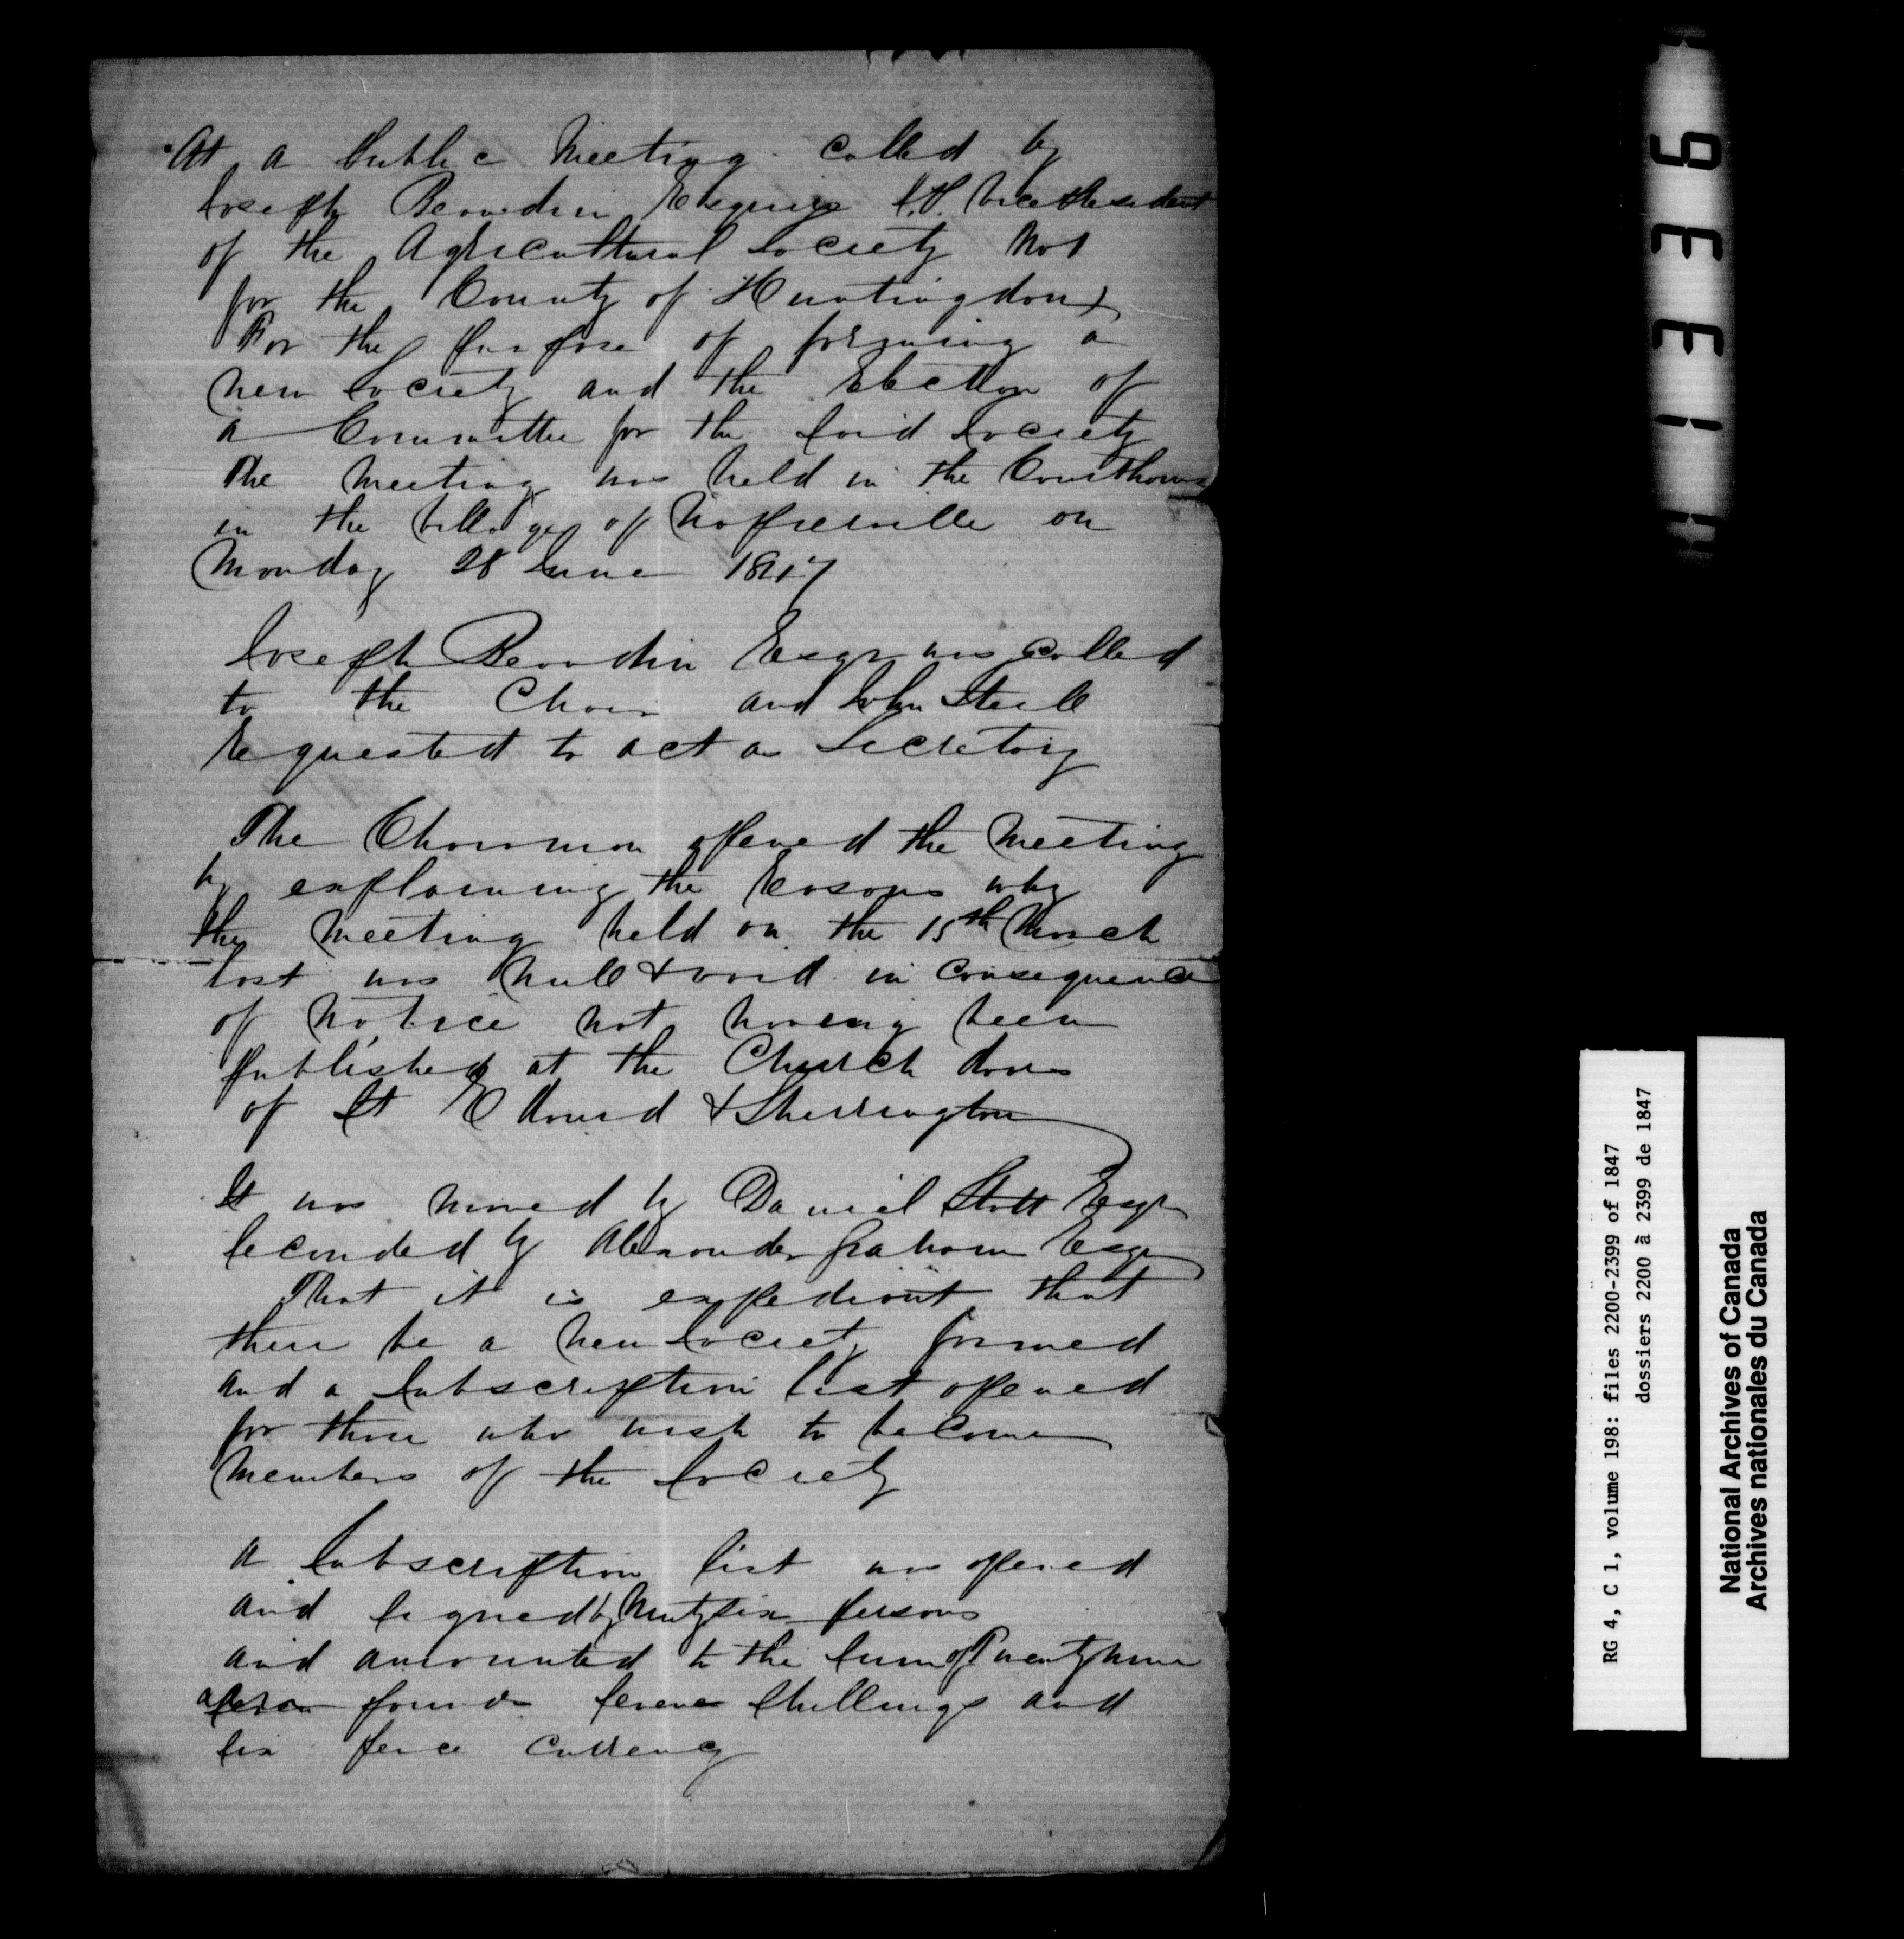 At a Public Meeting called by
Joseph Beaudin Esquire J.P. Vice President
of the Agricultural Society No 1
for the County of Huntingdon
For the purpose of forming a
new Society and the Election of
a Committee for the said Society
The meeting was held in the Courthouse
in the Village of Napierville on
Monday 28 June 1847
Joseph Beaudin Esqr was called
to the Chair and John Steele
Requested to act as Secretary
The Chairman opened the Meeting
by explaining the Reasons why
the Meeting held on the 15th March
last was null & void in Consequence
of Notice not having been
published at the Church doors
of St Edouard & Sherrington
It was moved by Daniel Stott Esqr
Seconded by Alexander Graham Esqr
That it is expedient that
there be a new Society formed
and a Subscription list opened
for those who wish to become
Members of the Society
A Subscription list was opened
and signed by six persons
and amounted to the sum of Twenty nine
pounds seven Shillings and
six pence Currency
1339
RG 4, C 1, volume 198: files 2200-2399 of 1847
dossiers 2200 à 2399 de 1847
National Archives of Canada
Archives nationales du Canada